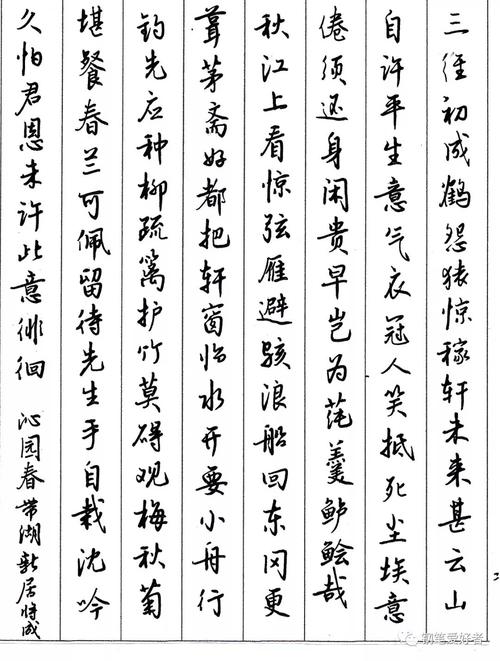 三径初成鹤怨猿惊稼轩未来甚云山
自许平生意气衣冠人笑抵死尘埃意
倦须还身闲贵早岂为莼羹鲈鲙哉
秋江上看惊弦雁避骇浪船回东冈更
葺茅斋好都把轩窗临水开要小舟行
钓先应种柳疏篱护竹莫碍观梅秋菊
堪餐春兰可佩留待先生手自栽沈吟
久怕君恩未许此意徘徊 沁园春 带湖新居将成
钢笔爱好者